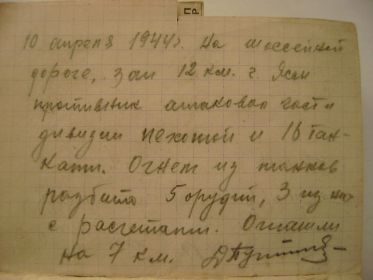 10 апреля 1944г. На шоссейной
дороге, зап 12 км. г. Яссы
противник атаковал части
дивизии пехотой и 16 тан-
ками. Огнем из танков
разбито 5 орудий, 3 из них
с расчетами. Отошли
на 7 км.